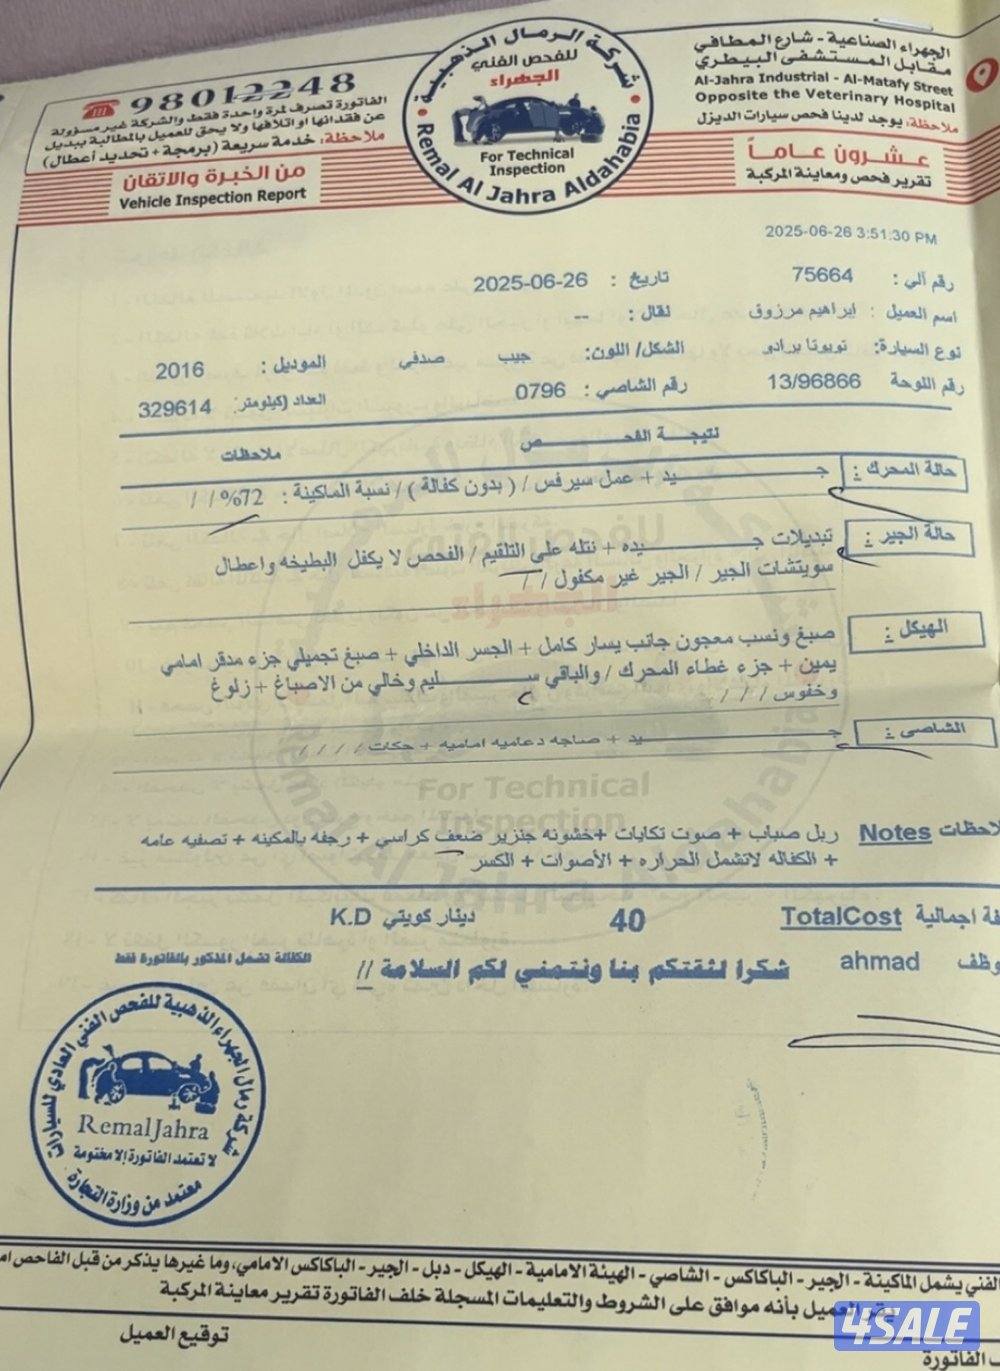 الجهراء الصناعية - شارع المطافي
مقابل المستشفى البيطري
Al-Jahra Industrial - Al-Matafy Street
Opposite the Veterinary Hospital
ملاحظة: يوجد لدينا فحص سيارات الديزل
عشرون عاماً
تقرير فحص ومعاينة المركبة
شركة الرمال الذهبية
للفحص الفني
الجهراء
For Technical
Inspection
Remal Al Jahra Aldahabia
98012248
الفاتورة تصرف لمرة واحدة فقط والشركة غير مسؤولة
عن فقدانها او اتلافها ولا يحق للعميل بالمطالبة ببديل
ملاحظة: خدمة سريعة (برمجة + تحديد أعطال)
من الخبرة والاتقان
Vehicle Inspection Report
2025-06-26 3:51:30 PM
رقم آلي : 75664 تاريخ : 2025-06-26
اسم العميل : ابراهيم مرزوق نقال : --
نوع السيارة: تويوتا برادو الشكل/ اللون: جيب صدفي الموديل : 2016
رقم اللوحة 13/96866 رقم الشاصي : 0796 العداد (كيلومتر) : 329614
نتيجة الفحص ملاحظات
حالة المحرك : جيد + عمل سيرفس / ( بدون كفالة ) / نسبة الماكينة : 72% / /
حالة الجير : تبديلات جيده + نتله على التلقيم / الفحص لا يكفل البطيخه واعطال
سويتشات الجير / الجير غير مكفول / /
الهيكل : صبغ ونسب معجون جانب يسار كامل + الجسر الداخلي + صبغ تجميلي جزء مدقر امامي
يمين + جزء غطاء المحرك / والباقي سليم وخالي من الاصباغ + زلوغ
وخفوس / / /
الشاصي : جيد + صاجه دعاميه اماميه + حكات / / / /
For Technical
Inspection
لاحظات Notes ربل صباب + صوت تكايات +خشونه جنزير ضعف كراسي + رجفه بالمكينه + تصفيه عامه
+ الكفاله لاتشمل الحراره + الأصوات + الكسر
فة اجمالية TotalCost 40 دينار كويتي K.D
وظف ahmad شكرا لثقتكم بنا ونتمني لكم السلامة //
الكفالة تشمل المذكور بالفاتورة فقط
شركة رمال الجهراء الذهبية للفحص الفني العادي للسيارات
RemalJahra
لا تعتمد الفاتورة إلا مختومة
معتمد من وزارة التجارة
الفني يشمل الماكينة - الجير - الباكاكس - الشاصي - الهيئة الامامية - الهيكل - دبل - الجير - الباكاكس الامامي، وما غيرها يذكر من قبل الفاحص
يقر العميل بأنه موافق على الشروط والتعليمات المسجلة خلف الفاتورة تقرير معاينة المركبة
4SALE
توقيع العميل
ف الفاتورة